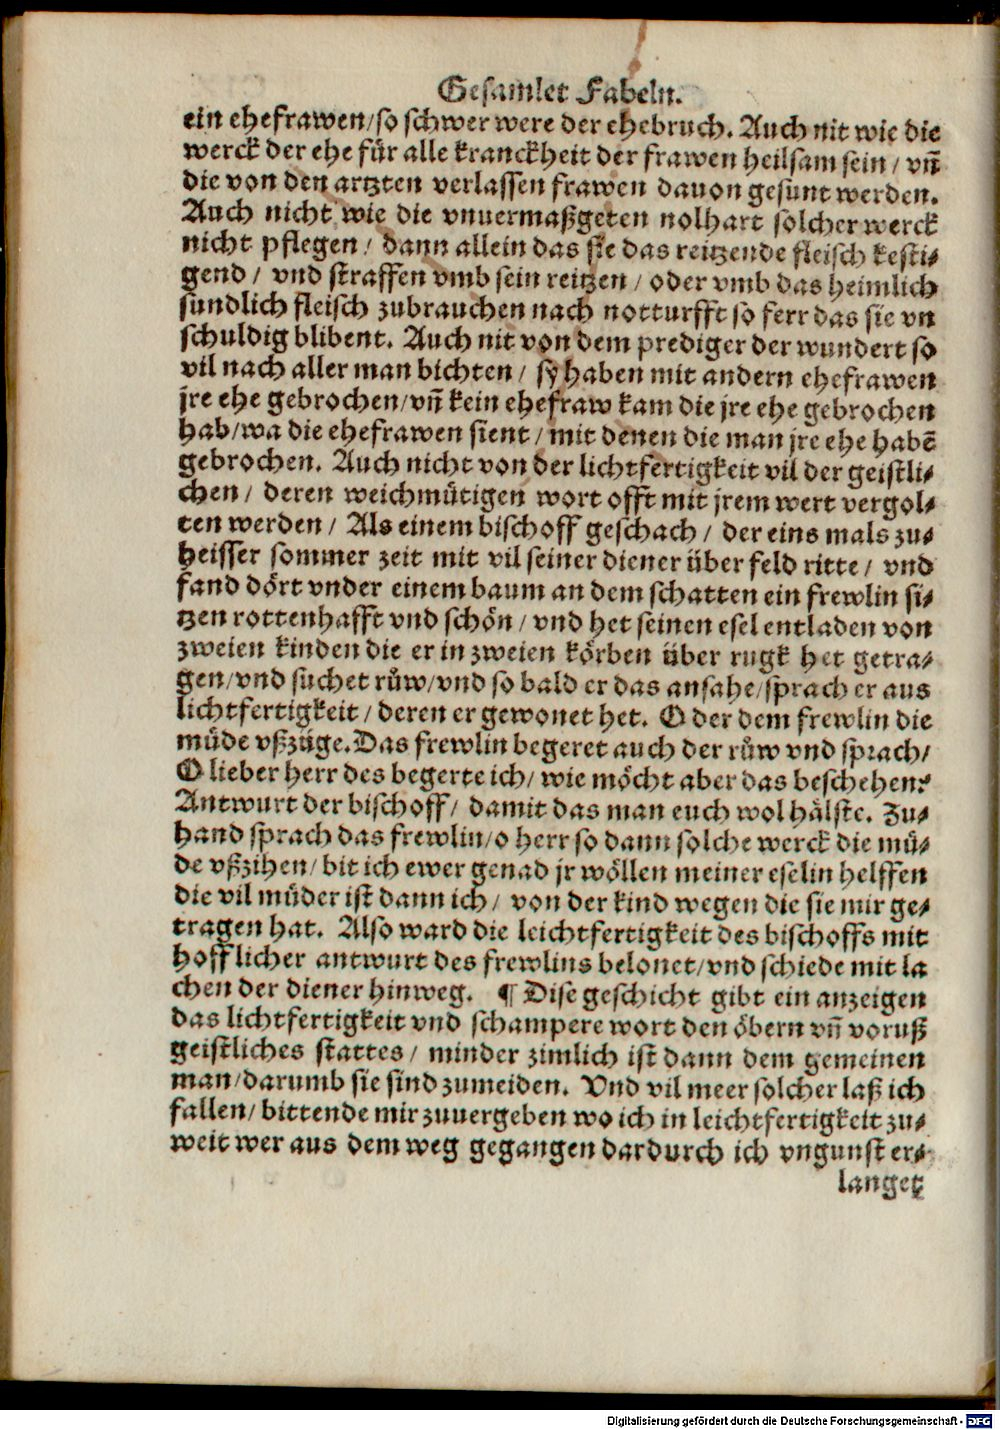 Gesamlet Fabeln.
ein ehefrawen/so schwer were der ehebruch. Auch nit wie die
werck der ehe für alle kranckheit der frawen heilsam sein/ vñ
die von den artzten verlassen frawen dauon gesunt werden.
Auch nicht wie die vnuermaßgeten nolhart solcher werck
nicht pflegen/ dann allein das sie das reitzende fleisch kesti⸗
gend/ vnd straffen vmb sein reitzen/ oder vmb das heimlich
sundlich fleisch zubrauchen nach notturfft so ferr das sie vn
schuldig blibent. Auch nit von dem prediger der wundert so
vil nach aller man bichten/ sy haben mit andern ehefrawen
jre ehe gebrochen/vñ kein ehefraw kam die jre ehe gebrochen
hab/wa die ehefrawen sient/mit denen die man jre ehe habē
gebrochen. Auch nicht von der lichtfertigkeit vil der geistli⸗
chen/ deren weichmütigen wort offt mit jrem wert vergol⸗
ten werden/ Als einem bischoff geschach/ der eins mals zu⸗
heisser sommer zeit mit vil seiner diener über feld ritte/ vnd
fand dört vnder einem baum an dem schatten ein frewlin si⸗
tzen rottenhafft vnd schön/ vnd het seinen esel entladen von
zweien kinden die er in zweien körben über rugk het getra⸗
gen/vnd suchet růw/vnd so bald er das ansahe/sprach er aus
lichtfertigkeit/ deren er gewonet het. O der dem frewlin die
müde vßzüge. Das frewlin begeret auch der růw vnd sprach/
O lieber herr des begerte ich/ wie möcht aber das beschehen?
Antwurt der bischoff/ damit das man euch wol hälste. Zu⸗
hand sprach das frewlin/o herr so dann solche werck die mü⸗
de vßzihen/bit ich ewer genad jr wöllen meiner eselin helffen
die vil müder ist dann ich/ von der kind wegen die sie mir ge⸗
tragen hat. Also ward die leichtfertigkeit des bischoffs mit
hofflicher antwurt des frewlins belonet/vnd schiede mit la
chen der diener hinweg. ¶ Dise geschicht gibt ein anzeigen
das lichtfertigkeit vnd schampere wort den öbern vñ voruß
geistliches stattes/ minder zimlich ist dann dem gemeinen
man/darumb sie sind zumeiden. Vnd vil meer solcher laß ich
fallen/bittende mir zuuergeben wo ich in leichtfertigkeit zu⸗
weit wer aus dem weg gegangen dardurch ich vngunst er⸗
langet
Digitalisierung gefördert durch die Deutsche Forschungsgemeinschaft - DFG